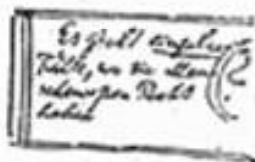 Es giebt einzelne
Fälle, wo die alten
Recht
haben